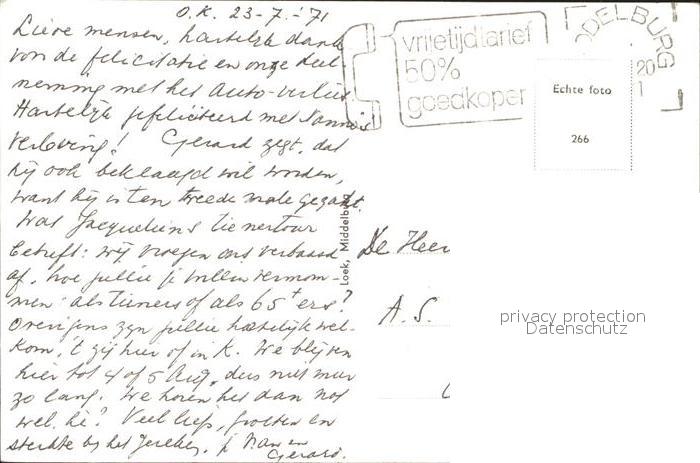 O.K. 23-7-'71
Lieve mensen, hartelijk dank
voor de felicitatie en onze deel-
neming met het auto-verlies
Hartelijk gefeliciteerd met
verloving! Gerard zegt, dat
hij ook beklaagd wil worden,
want hij is ten tweede male gezakt.
Wat Jacquelines tienertour
betreft: wij vroegen ons verbaasd
af, hoe jullie je willen vermom-
men: als tieners of als 65+ers?
Overigens zijn jullie hartelijk wel-
kom, 't zij hier of in K. We blijven
hier tot 4 of 5 Aug, dus niet meer
zo lang. We horen het dan nog
wel, hè? Veel liefs, groeten en
sterkte bij het
Gerard.
vrijetijdtarief
50%
goedkoper
MIDDELBURG
20
1
Echte foto
266
Loek, Middelburg
De Heer
A. S.
privacy protection
Datenschutz